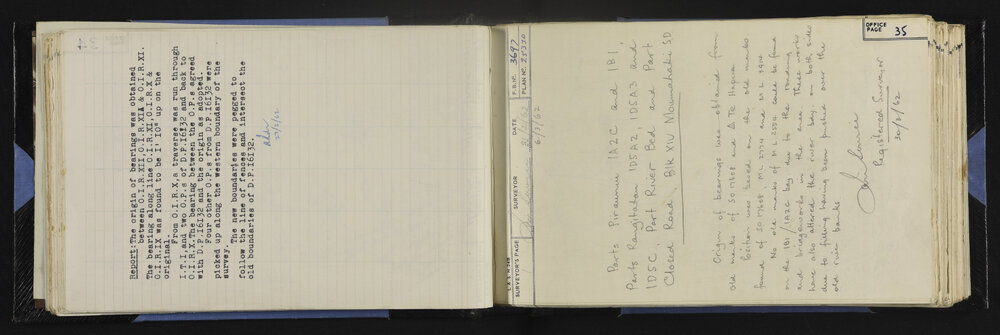 Report:The origin of bearings was obtained
between O.I.R.XII,O.I.R.XIA & O.I.R.XI.
The bearing along line O.I.R.XI,O.I.R.X &
O.I.R.IX was found to be 1' 10" up on the
original.
From O.I.R.X,a traverse was run through
I.T.I.and two O.P.s of D.P.16132 and back to
O.I.R.X.The bearing between the O.P.s agreed
with D.P.16132 and the origin as adopted.
Four other O.P.s from D.P.16132 were
picked up along the western boundary of the
survey.
The new boundaries were pegged to
follow the line of fences and intersect the
old boundaries of D.P.16132.
L & S
SURVEYOR'S PAGE
SURVEYOR
DATE
6/3/62
F.B. No. 3697
PLAN No. 25330
OFFICE PAGE 35
Parts Piraunui 1A2C and 1B1,
Parts Rangitatau 1D5A2, 1D5A3 and
1D5C, Part River Bed and Part
Closed Road Blk XIV Momahaki SD
Origin of bearings were obtained from
old marks of SO and Δ Te Hapua
Position was based on the old marks
found of SO, ML and ML
No old marks of ML 2534 could be found
on the 1B1/1A2C bdy due to the roading
and bridgeworks in the area. These works
have also altered the river bdy. on both sides
due to filling having been pushed over the
old river bank.
Registered Surveyor